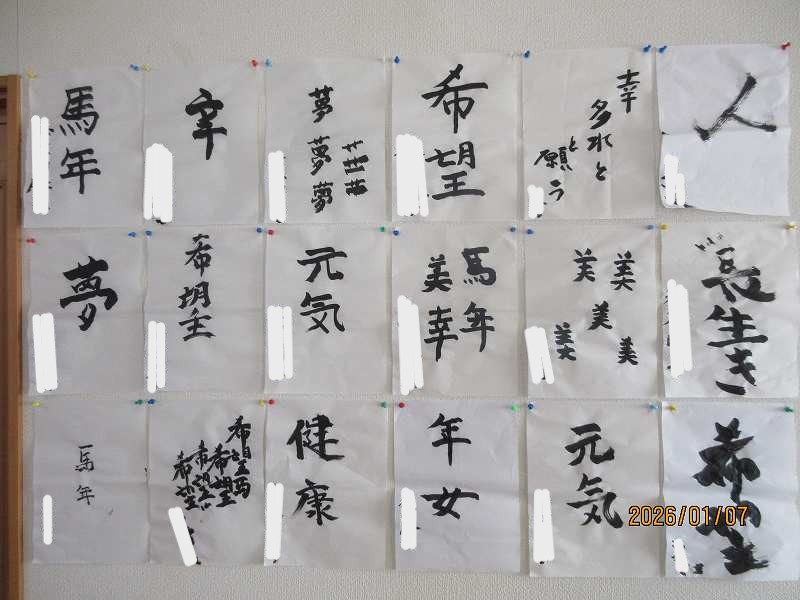 馬年
幸
夢
夢
夢
夢夢夢
希望
幸
多れと
と
願う
人
夢
希望
元気
馬年
美幸
美
美
美
美
美
長生き
馬年
希望馬
希望
希望
希望
健康
年女
元気
希望
2026/01/07